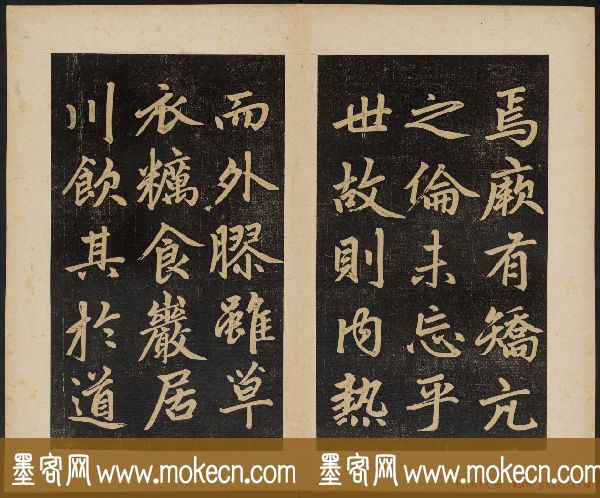 焉厥有矯亢
之倫未忘乎
世故則內熱
而外膠雖草
衣糲食巖居
川飲其於道
墨客网 www.mokecn.com
墨客网 www.mokecn.com